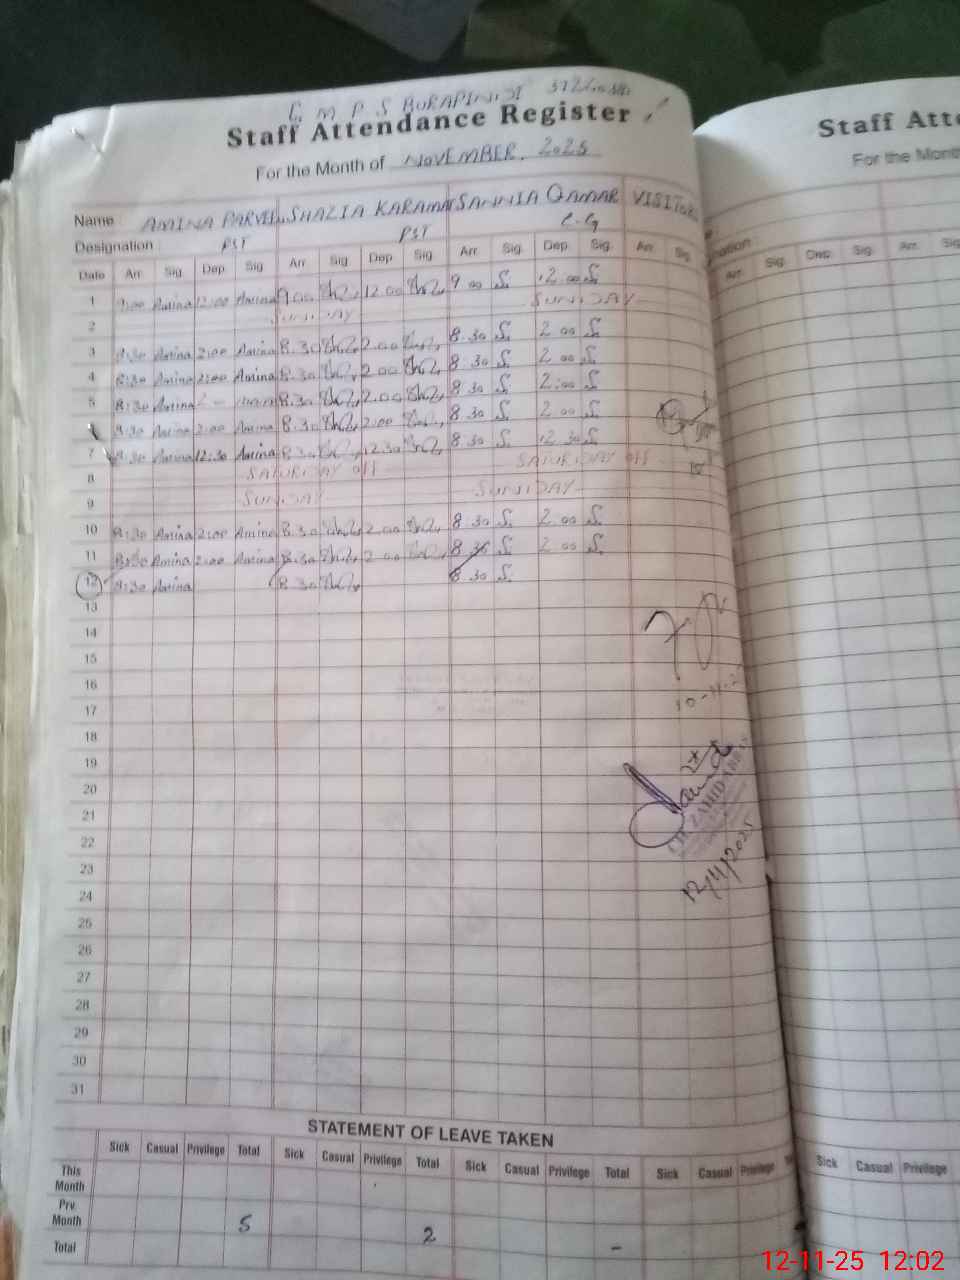 G M P S BURAPIND
Staff Attendance Register
For the Month of NOVEMBER, 2025
Name AMINA PARVEEN SHAZIA KARAMAT SANNIA QAMAR VISITORS
Designation PST PST C-G
Date Arr. Sig. Dep. Sig. Arr. Sig. Dep. Sig. Arr. Sig. Dep. Sig. Arr. Sig.
1 9:00 Amina 12:00 Amina 9.00 12.00 9 00 S. 12 00 S.
2 SUNDAY SUNDAY
3 8:30 Amina 2:00 Amina 8.30 2.00 8.30 S. 2 00 S.
4 8:30 Amina 2:00 Amina 8.30 2.00 8.30 S. 2 00 S.
5 8:30 Amina Amina 8.30 2.00 8.30 S. 2:00 S.
8:30 Amina 2:00 Amina 8.30 2:00 8.30 S. 2 00 S.
7 8:30 Amina 12:30 Amina 8.30 12.30 8.30 S. 12 30 S.
8 SATURDAY OFF SATURDAY OFF
9 SUNDAY SUNDAY
10 8:30 Amina 2:00 Amina 8.30 2.00 8 30 S. 2 00 S.
11 8:30 Amina 2:00 Amina 8.30 2.00 8 30 S. 2 00 S.
12 8:30 Amina 8.30 8 30 S.
13
14
15
16
17
18
19
20
21
22
23
24
25
26
27
28
29
30
31
10-11-2
CH. ZAHID
12/11/2025
STATEMENT OF LEAVE TAKEN
Sick Casual Privilege Total Sick Casual Privilege Total Sick Casual Privilege Total Sick Casual Privilege
This Month
Prv. Month 5 2 –
Total
Staff Atte
For the Month
Arr. Sig. Dep. Sig. Arr. Sig.
Sick Casual Privilege
12-11-25 12:02